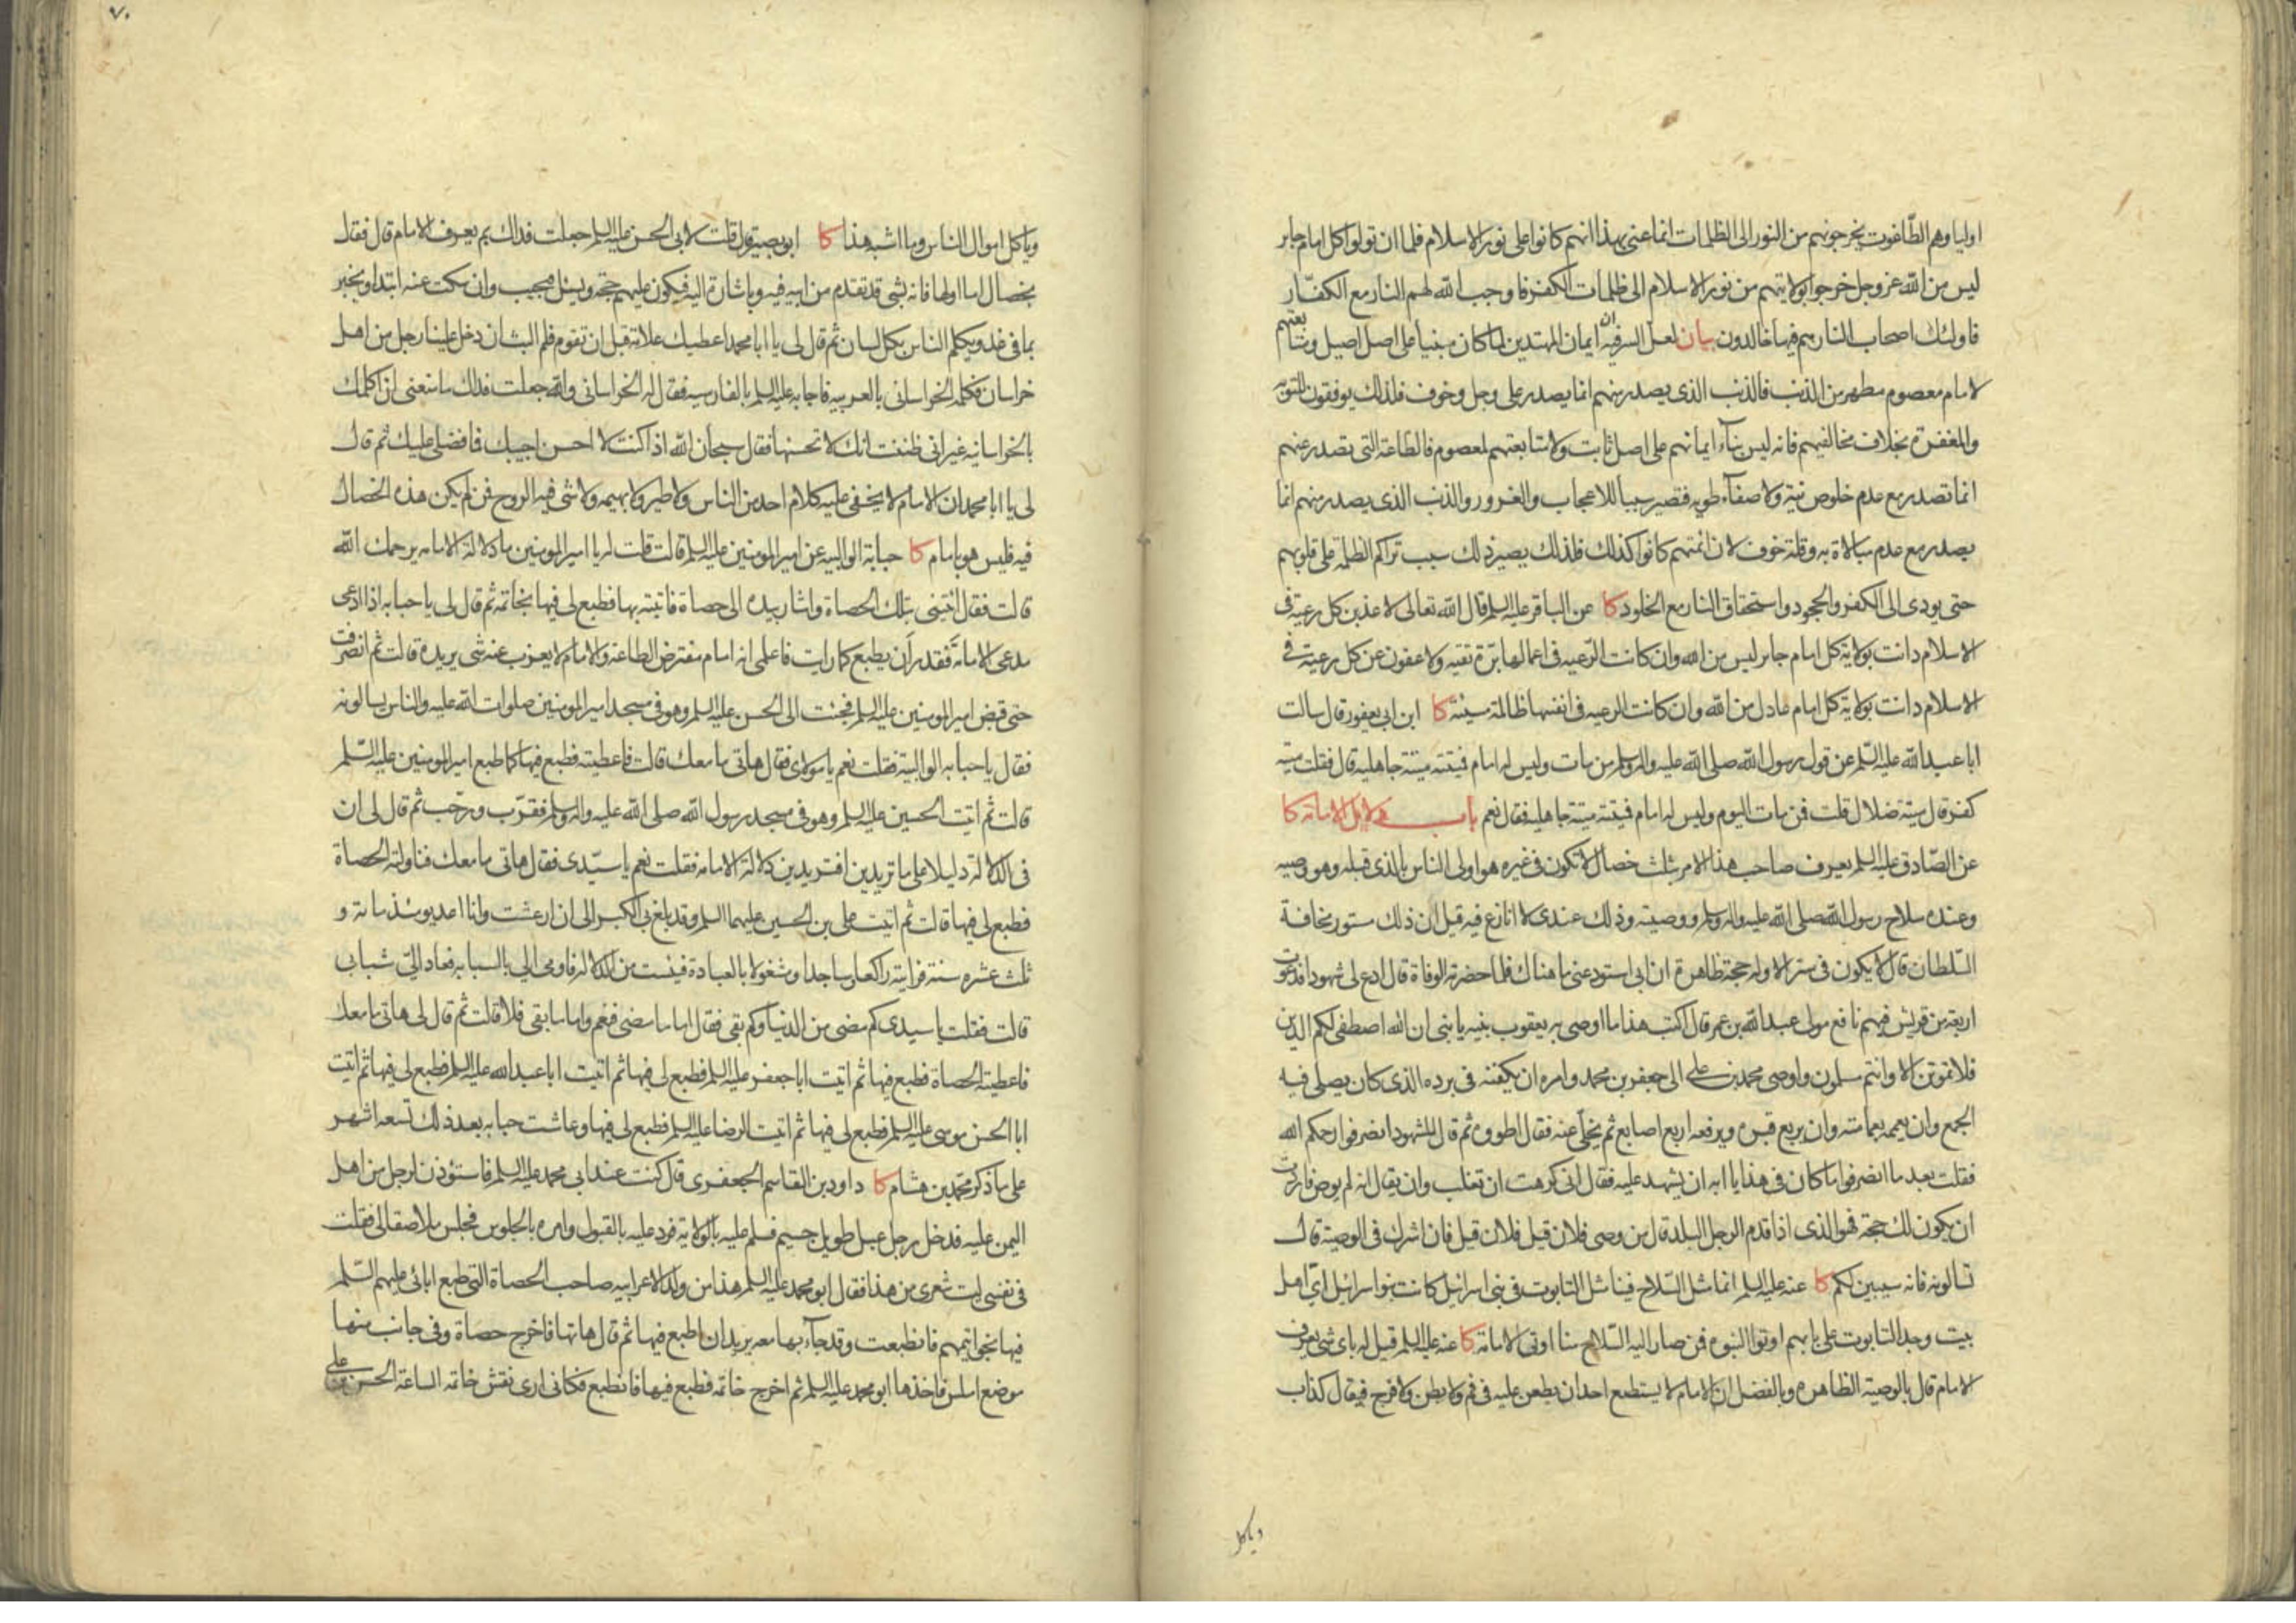 اولياؤهم الطّاغوت يخرجونهم من النور الى الظلمات انما عنى بهذا انهم كانوا على نور الاسلام فلما ان تولوا كل امام جاير
ليس من اللّه عز وجل خرجوا بولايتهم من نور الاسلام الى ظلمات الكفر فاوجب اللّه لهم النار مع الكفّار
فاولئك اصحاب النار هم فيها خالدون بيان لعل السر فيه ان ايمان المهتدين لما كان مبنيا على اصل اصيل ومتابعتهم
لامام معصوم مطهر من الذنب فالذنب الذى يصدر منهم انما يصدر على وجل وخوف فلذلك يوفقون للتوبة
والمغفرة بخلاف مخالفيهم فانه ليس بناء ايمانهم على اصل ثابت ولا متابعتهم لمعصوم فالطاعة التى تصدر عنهم
انما تصدر مع عدم خلوص نية ولا صفاء طويه فتصير سببا للاعجاب والغرور والذنب الذى يصدر منهم انما
يصدر مع عدم مبالاة به وقلة خوف لان ائمتهم كانوا كذلك فلذلك يصير ذلك سبب تراكم الظلمة على قلوبهم
حتى يودى الى الكفر والجحود واستحقاق النار مع الخلود كا عن الباقر عليه السلم قال اللّه تعالى لاعذبن كل رعية فى
الاسلام دانت بولاية كل امام جاير ليس من اللّه وان كانت الرّعيه فى اعمالها برّة تقيه ولاعفون عن كل رعية فى
الاسلام دانت بولاية كل امام عادل من اللّه وان كانت الرعيه فى انفسها ظالمة سيئة كا ابن ابى يعفور قال سالت
ابا عبد اللّه عليه السّلم عن قول رسول اللّه صلى اللّه عليه واله وسلم من مات وليس له امام فميتته ميتة جاهليه قال فقلت ميتة
كفر قال ميتة ضلال قلت فمن مات اليوم وليس له امام فميتته ميتة جاهليه فقال نعم باب دلايل الامامة كا
عن الصّادق عليه السلم يعرف صاحب هذا الامر بثلث خصال لا تكون فى غيره هو اولى الناس بالذى قبله وهو وصيه
وعنده سلاح رسول اللّه صلى اللّه عليه واله وسلم ووصيته وذلك عندى لا انازع فيه قيل ان ذلك مستور مخافة
السّلطان قال لا يكون فى ستر الا وله حجة ظاهرة ان ابى استودعنى ما هناك فلما حضرته الوفاة قال ادع لى شهودا فدعوت
اربعة من قريش فيهم نافع مولى عبد اللّه بن عمر قال اكتب هذا ما اوصى به يعقوب بنيه يا بنى ان اللّه اصطفى لكم الدين
فلا تموتن الا وانتم مسلمون واوصى محمد بن على الى جعفر بن محمد وامره ان يكفنه فى برده الذى كان يصلى فيه
الجمع وان يعممه بعمامته وان يربع قبره ويرفعه اربع اصابع ثم يخلى عنه فقال اطووه ثم قال للشهود انصرفوا رحمكم اللّه
فقلت بعد ما انصرفوا ما كان فى هذا يا ابه ان يشهد عليه فقال انى كرهت ان تغلب وان يقال انه لم يوص فاردت
ان يكون لك حجة فهو الذى اذا قدم الرجل البلد قال من وصى فلان قيل فلان قيل فان اشرك فى الوصية قال
تسالونه فانه سيبين لكم كا عنه عليه السلم انما مثل السّلاح فينا مثل التابوت فى بنى اسرائيل كانت بنو اسرائيل اىّ اهل
بيت وجد التابوت على بابهم اوتوا النبوه فمن صار اليه السّلاح منا اوتى الامامة كا عنه عليه السلم قيل له باى شئ يعرف
الامام قال بالوصية الظاهره وبالفضل ان الامام لا يستطيع احد ان يطعن عليه فى فم ولا بطن ولا فرج فيقال كذاب
وياكل
٧٠
وياكل اموال الناس وما اشبه هذا كا ابو بصير قال قلت لابى الحسن عليه السلم جعلت فداك بم يعرف الامام قال فقال
بخصال اما اولها فانه بشئ قد تقدم من ابيه فيه وباشارة اليه فيكون عليهم حجة ويسئل فيجيب وان سكت عنه ابتدا ويخبر
بما فى غد ويكلم الناس بكل لسان ثم قال لى يا ابا محمد اعطيك علامة قبل ان تقوم فلم البث ان دخل علينا رجل من اهل
خراسان فكلمه الخراسانى بالعربيه فاجابه عليه السلم بالفارسيه فقال له الخراسانى واللّه جعلت فداك ما منعنى ان اكلمك
بالخراسانيه غير انى ظننت انك لا تحسنها فقال سبحان اللّه اذا كنت لا احسن اجيبك فما فضلى عليك ثم قال
لى يا ابا محمد ان الامام لا يخفى عليه كلام احد من الناس ولا طير ولا بهيمه ولا شئ فيه الروح فمن لم يكن هذه الخصال
فيه فليس هو بامام كا حبابة الوالبيه عن امير المومنين عليه السلم قالت قلت له يا امير المومنين ما دلالة الامامه يرحمك اللّه
قالت فقال ائتينى بتلك الحصاة واشار بيده الى حصاة فاتيته بها فطبع لى فيها بخاتمه ثم قال لى يا حبابه اذا ادعى
مدعى الامامة فقدر ان يطبع كما رايت فاعلمى انه امام مفترض الطاعة والامام لا يعزب عنه شى يريده قالت ثم انصرفت
حتى قبض امير المومنين عليه السلم فجئت الى الحسن عليه السلم وهو فى مسجد امير المومنين صلوات اللّه عليه والناس يسالونه
فقال يا حبابه الوالبية فقلت نعم يا مولاى فقال هاتى ما معك قالت فاعطيته فطبع فيها كما طبع امير المومنين عليه السّلم
قالت ثم اتيت الحسين عليه السلم وهو فى مسجد رسول اللّه صلى اللّه عليه واله وسلم فقرّب ورحّب ثم قال لى ان
فى الدلالة دليلا على ما تريدين افتريدين دلالة الامامه فقلت نعم يا سيّدى فقال هاتى ما معك فناولته الحصاة
فطبع لى فيها قالت ثم اتيت على بن الحسين عليهما السلم وقد بلغ بى الكبر الى ان ارعشت وانا اعد يومئذ مائة و
ثلث عشره سنة فرايته راكعا وساجدا ومشغولا بالعبادة فيئست من الدلاله فاومى الى بالسبابه فعاد الىّ شبابى
قالت فقلت يا سيدى كم مضى من الدنيا وكم بقى فقال اما ما مضى فنعم واما ما بقى فلا قالت ثم قال لى هاتى ما معك
فاعطيته الحصاة فطبع فيها ثم اتيت ابا جعفر عليه السلم فطبع لى فيها ثم اتيت ابا عبد اللّه عليه السلم فطبع لى فيها ثم اتيت
ابا الحسن موسى عليه السلم فطبع لى فيها ثم اتيت الرضا عليه السلم فطبع لى فيها وعاشت حبابه بعد ذلك تسعه اشهر
على ما ذكر محمد بن هشام كا داود بن القاسم الجعفرى قال كنت عند ابى محمد عليه السلم فاستؤذن لرجل من اهل
اليمن عليه فدخل رجل عبل طويل جسيم فسلم عليه بالولاية فرد عليه بالقبول وامره بالجلوس فجلس ملاصقا لى فقلت
فى نفسى ليت شعرى من هذا فقال ابو محمد عليه السلم هذا من ولد الاعرابيه صاحب الحصاة التى طبع ابائى عليهم السّلم
فيها بخواتيمهم فانطبعت وقد جاء بها معه يريد ان اطبع فيها ثم قال هاتها فاخرج حصاة وفى جانب منها
موضع املس فاخذها ابو محمد عليه السلم ثم اخرج خاتمه فطبع فيها فانطبع فكانى ارى نقش خاتمه الساعة الحسن بن على